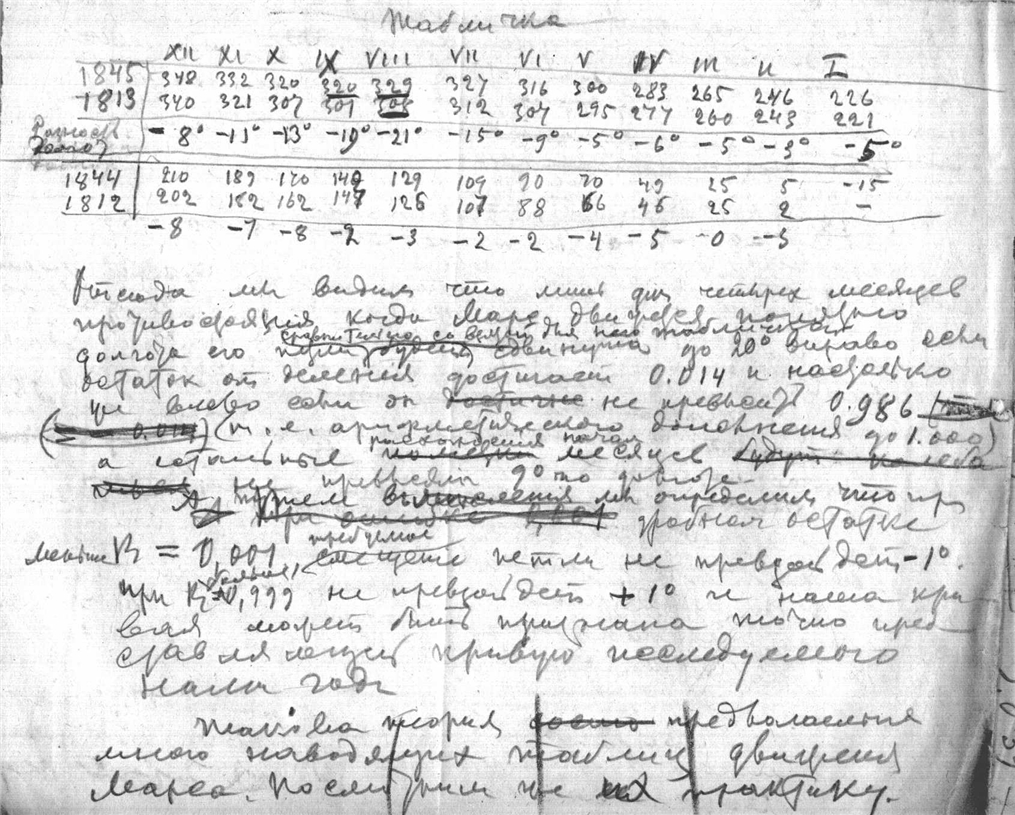 Табличка
XII XI X IX VIII VII VI V IV III II I
1845 348 332 320 320 329 327 316 300 283 265 246 226
1813 340 321 307 301 308 312 307 295 277 260 243 221
Разность долгот -8° -11° -13° -19° -21° -15° -9° -5° -6° -5° -3° -5°
1844 210 189 170 149 129 109 90 70 49 25 5 -15
1812 202 182 162 147 126 107 88 66 46 25 2 -
-8 -7 -8 -2 -3 -2 -2 -4 -5 -0 -3
Отсюда мы видим что лишь для четырех месяцев
противостояния когда Марс движется попятно
долгота его сдвинута до 20° вправо если
остаток от деления достигает 0.014 и настолько
же влево если он достигне не превысит 0.986
0.014 (т. е. арифметического дополнения до 1.000)
расхождения
а остальные месяцев будут
не превысили 9° по долготе.
А путем вычисления мы определим что при
При дробном остатке
меньше R = 0,001 требуемое смещение петли не превзойдет -1°.
при R > 0,999 не превзойдет +1° и наша кри
вая может быть признана точно пред
ставляющей кривую исследуемого
нами года
Такова теория предлагаемых
мною наводящих таблиц движения
Марса. Посмотрим же их практику.